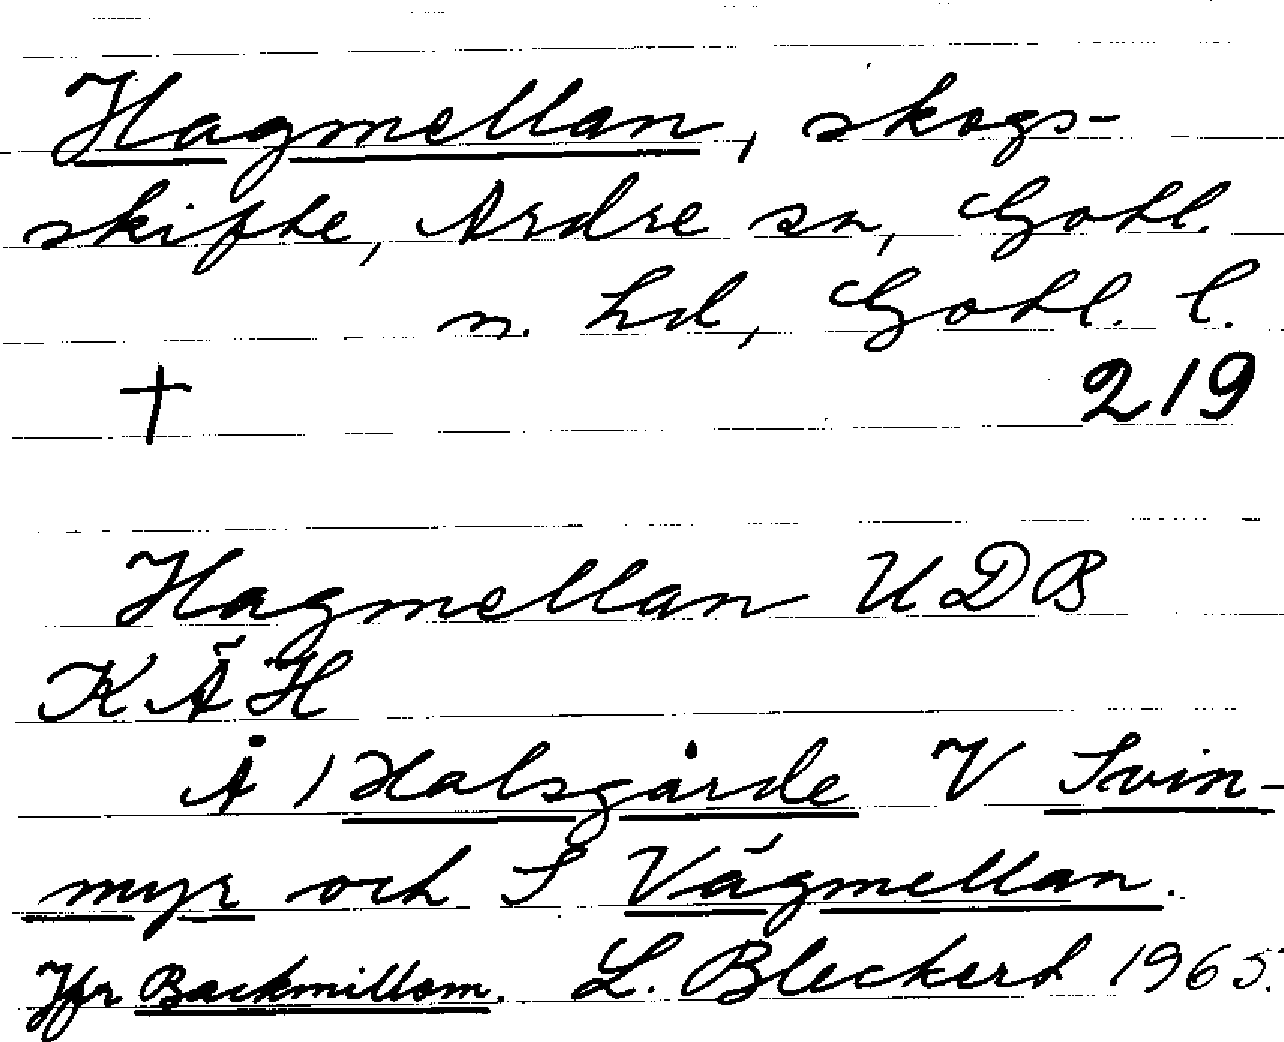 Hagmellan, skogs-
skifte, Ardre sn, Gotl.
n. hd, Gotl. l.
† 219
Hagmellan UDB
KÄH
Å / Halsgårde V Svin-
myr och S Vägmellan.
Jfr Backmillom. L. Bleckert 1965.